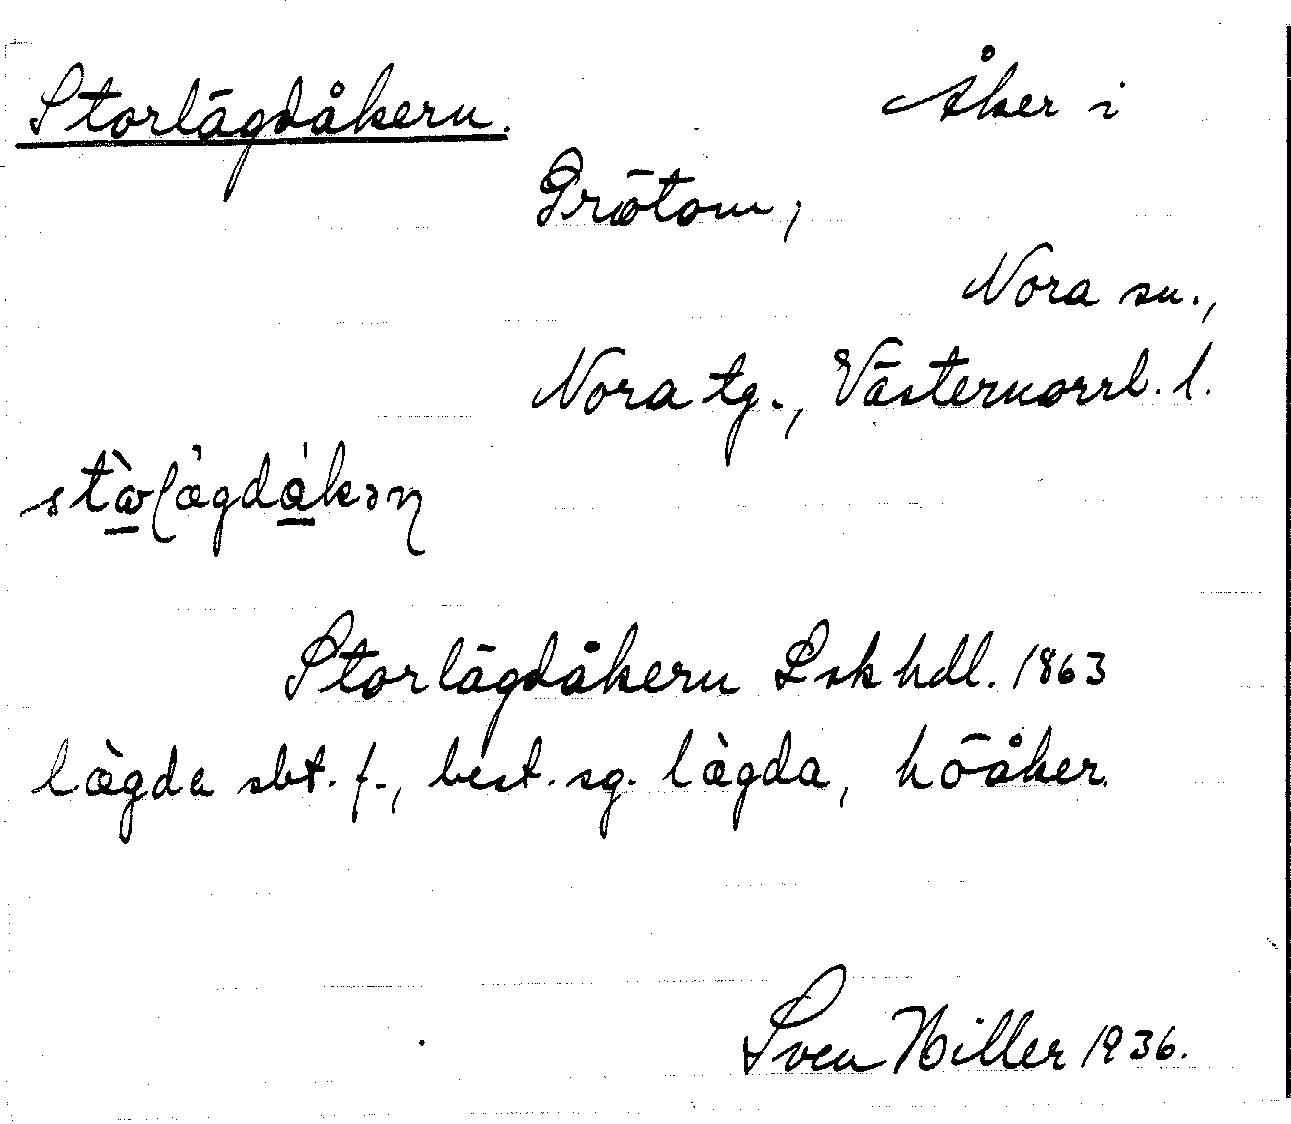 Storlägdåkern. Åker i
Grötom,
Nora sn.,
Nora tg., Västernorrl. l.
Storlägdåkern Lsk hdl. 1863
lägda sbt. f., best. sg. lägda, höåker.
Sven Hiller 1936.